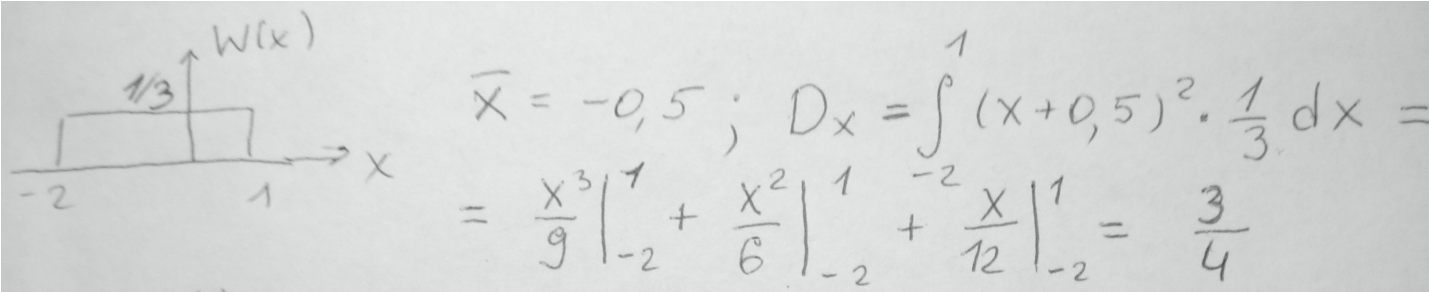 W(x)
1/3
-2 1 x
x̄ = -0,5 ; Dx = ∫₋₂¹ (x+0,5)² · 1/3 dx =
= x³/9 |₋₂¹ + x²/6 |₋₂¹ + x/12 |₋₂¹ = 3/4